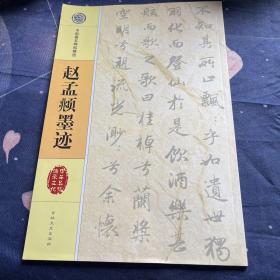 赵孟頫墨迹
不知其所止飄〻乎如遺世獨
羽化而登仙於是飲酒樂甚
舷而歌之歌曰桂棹兮蘭槳
空明兮泝流光渺〻兮余懷
吉林文史出版社